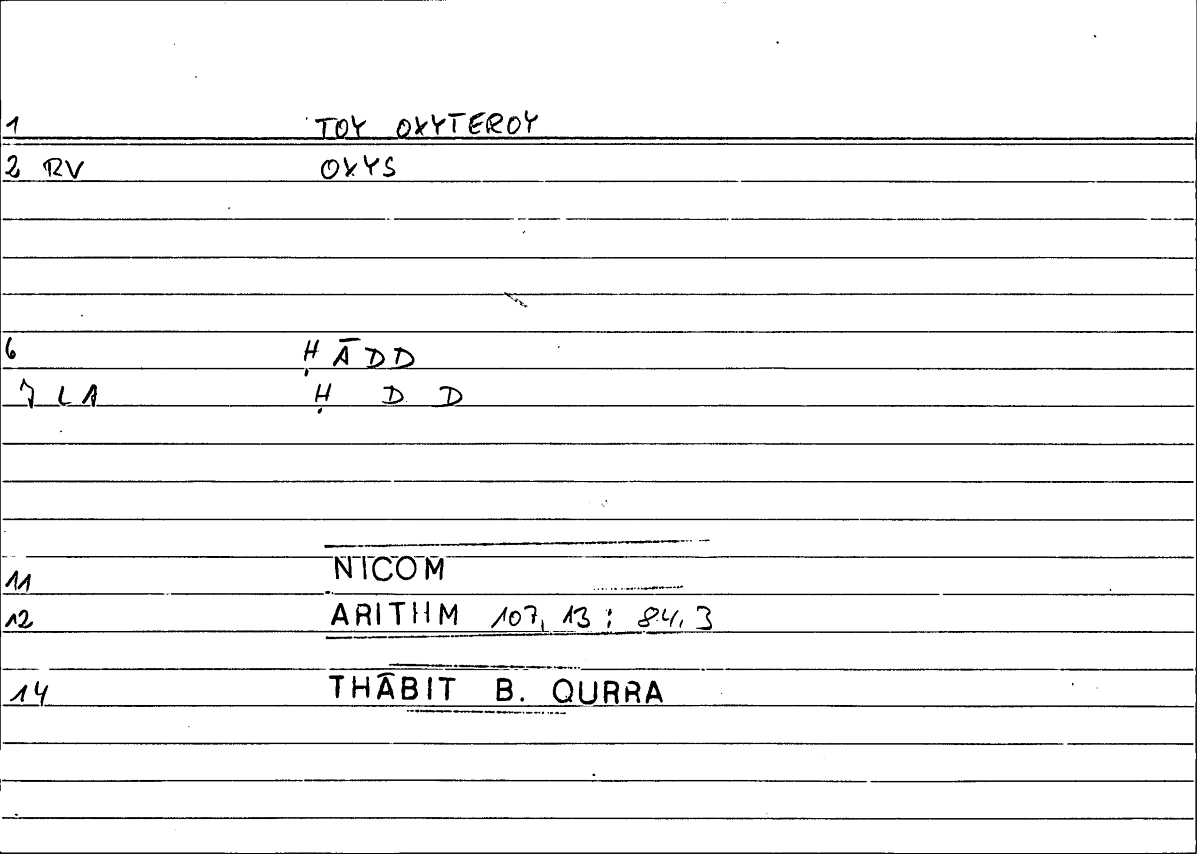 1 TOY OXYTEROY
2 RV OXYS
6 ḤĀDD
7 LA Ḥ D D
11 NICOM
12 ARITHM 107, 13 ; 84, 3
14 THĀBIT B. QURRA